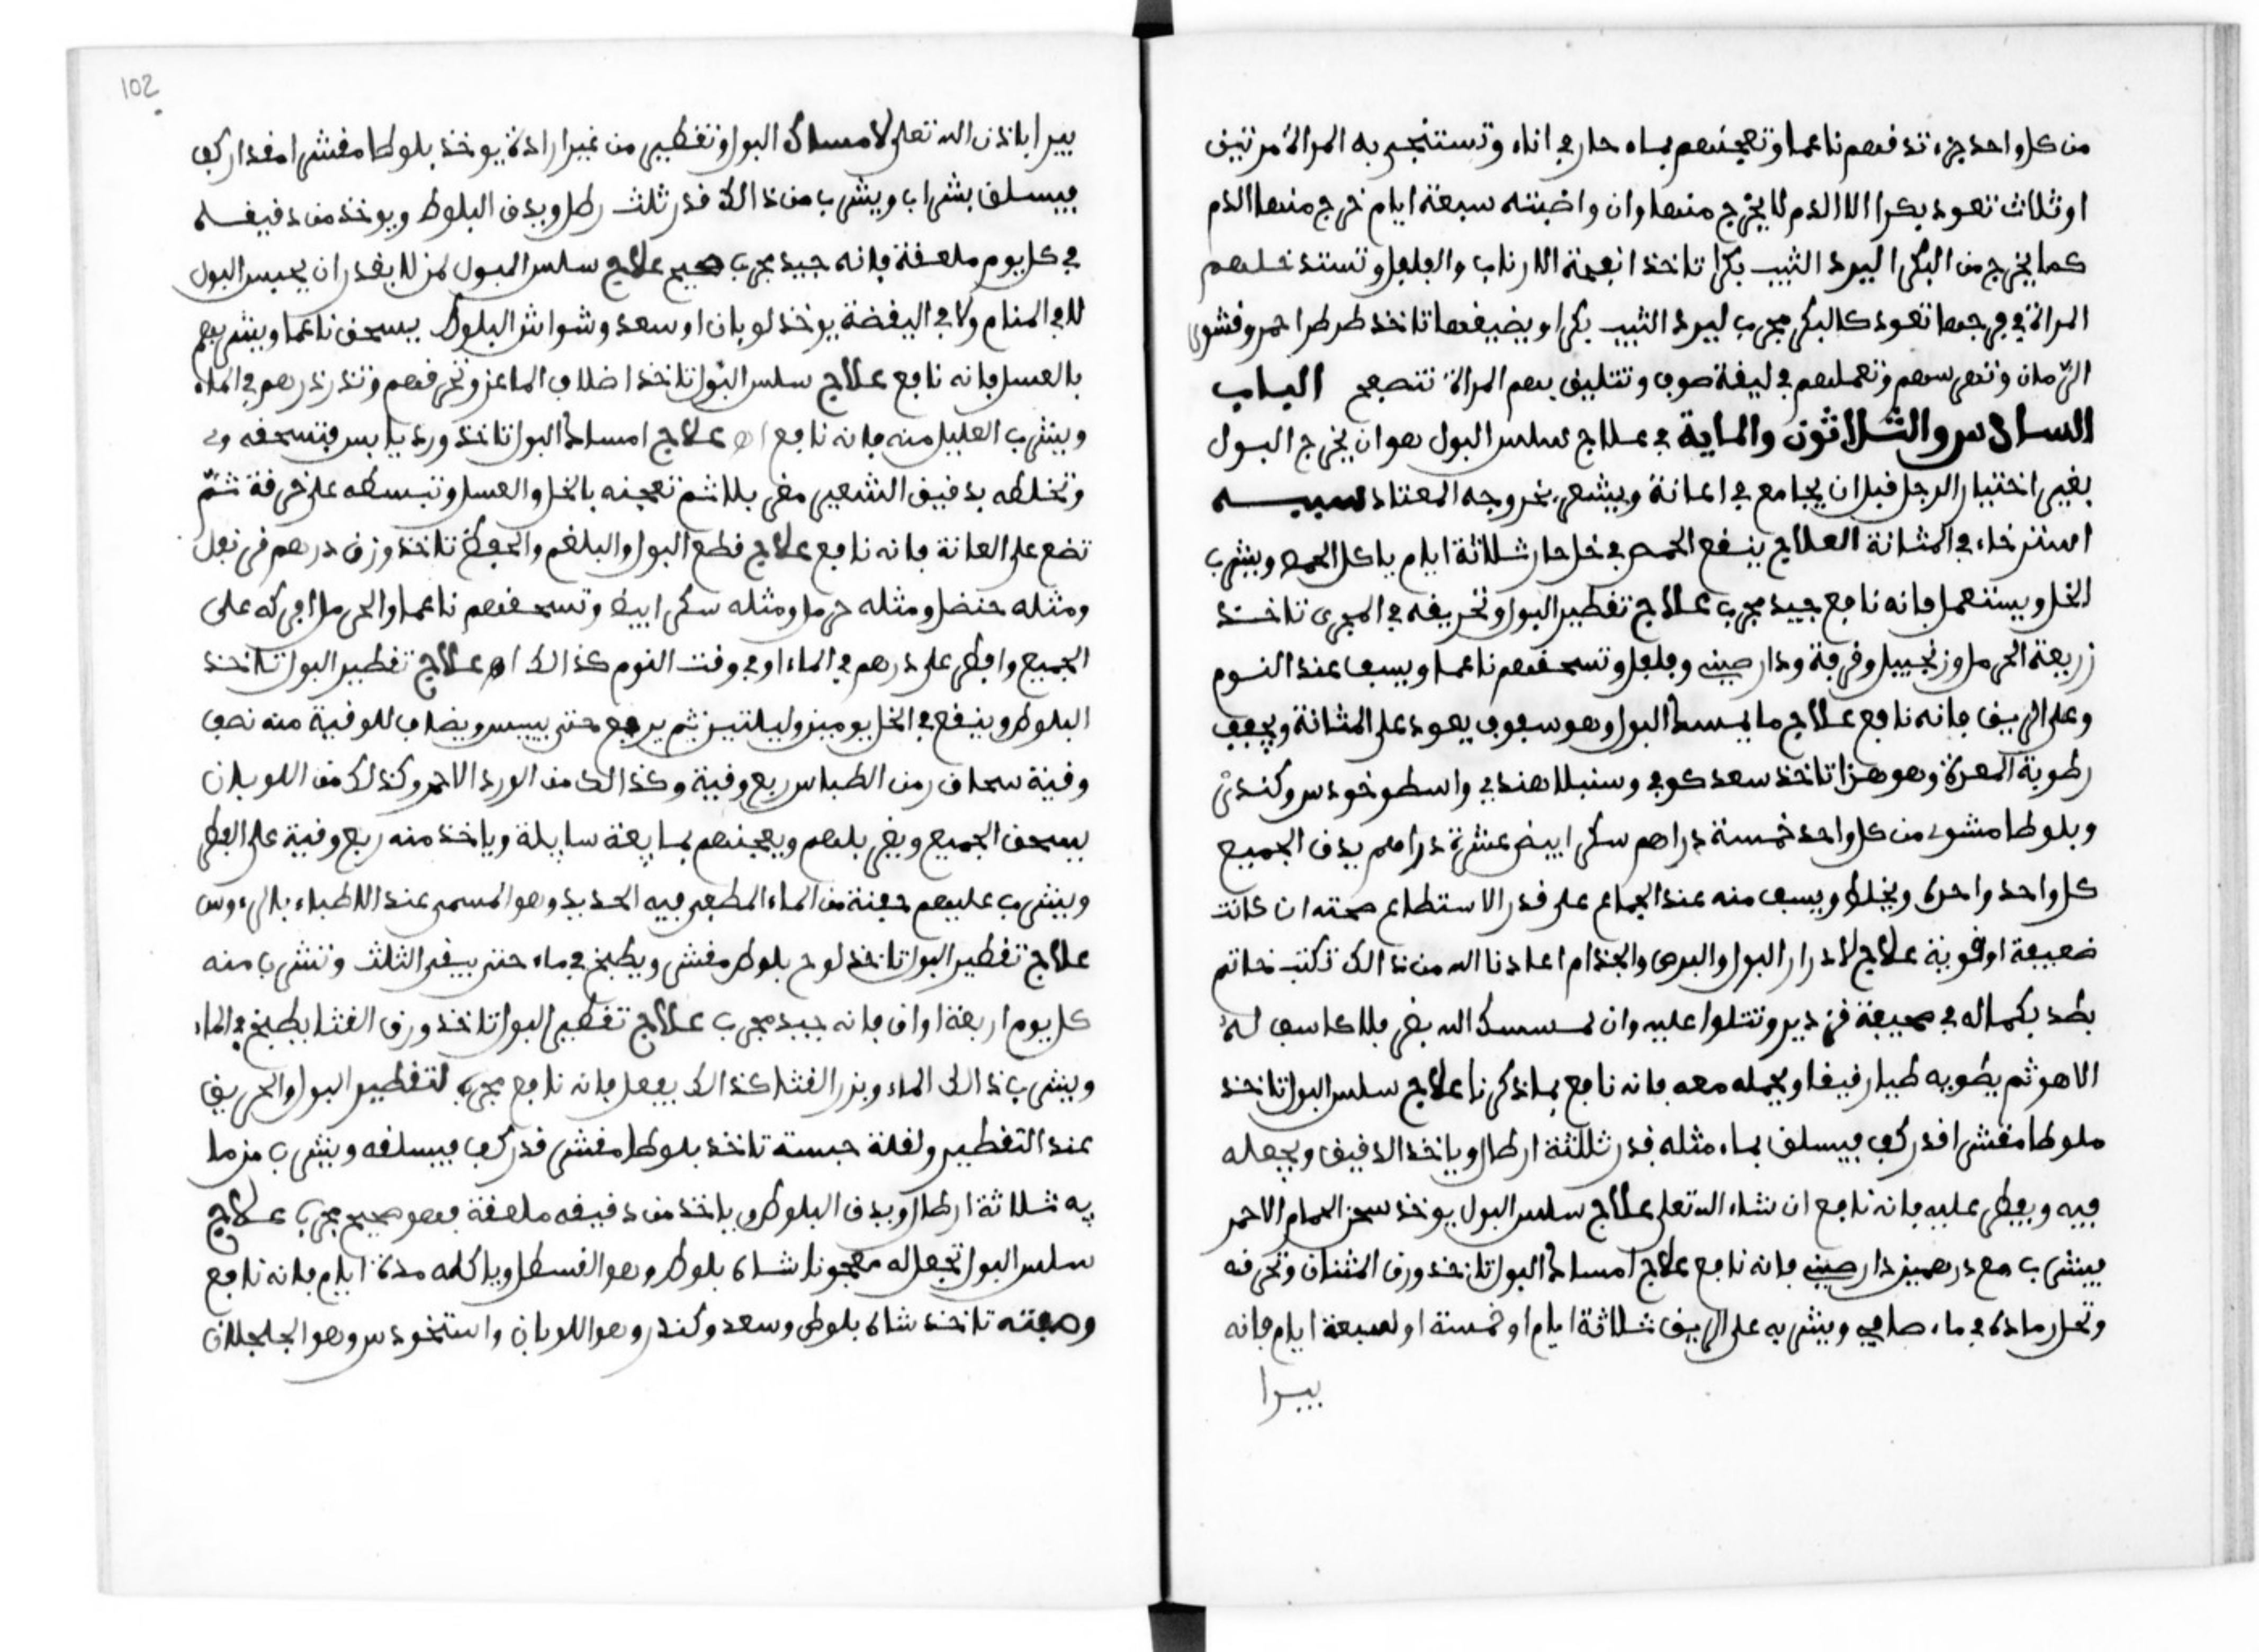 من كل واحد جزء تدقهم ناعما وتعجنهم بماء حار في اناء وتستنجي به المراة مرتين
او ثلاث تعود بكرا الا الدم لا يخرج منها وان واضبته سبعة ايام خرج منها الدم
كما يخرج من البكر ليرد الثيب بكرا تاخذ انفحة الارناب والفلفل وتستدخلهم
المراة في فرجها تعود كالبكر مجرب ليرد الثيب بكرا ويضيقها تاخذ طرطر احمر وقشور
الرمان وتهرسهم وتعملهم في ليفة صوف وتتليق بهم المراة تنصحح الباب
السادس والثلاثون والماية في علاج سلس البول هو ان يخرج البول
بغير اختيار الرجل قبل ان يجامع في العانة ويشعر بخروجه المعتاد سببه
استرخاء في المثانة العلاج ينقع الحمص في خل حار ثلاثة ايام ياكل الحمص ويشرب
الخل ويستعمل فانه نافع جييد مجرب علاج تقطير البول وتحريقه في المجرى تاخذ
زريعة الحرمل وزنجبيل وقرفة ودار صيني وفلفل وتسحقهم ناعما ويسف عند النوم
وعلى الريق فانه نافع علاج ما يمسك البول وهو سفوف يعود على المثانة ويجفف
رطوبة المعدة وهو هذا تاخذ سعد كوفي وسنبل هندي واسطوخودس وكندر
وبلوطا مشوي من كل واحد خمسة دراهم سكر ابيض عشرة دراهم يدق الجميع
كل واحد واحدة ويخلط ويسف منه عند الجماع على قدر الاستطاع صحته ان كانت
ضعيفة او قوية علاج لادرار البول والبرص والجذام اعاذنا الله من ذالك تكتب خاتم
بطد بكماله في صحيفة قزدير وتتلوا عليه وان يمسسك الله بضر فلا كاشف له
الا هو ثم يطويه طيا رقيقا ويحمله معه فانه نافع بما ذكرنا علاج سلس البول تاخذ
بلوطا مقشرا قدر كف فيسلق بماء مثله قدر ثلثة ارطال وياخذ الدقيق ويجعله
فيه ويفطر عليه فانه نافع ان شاء الله تعلى علاج سلس البول يوخذ سحق الحمام الاحمر
فيشرب مع درهمين دار صيني فانه نافع علاج امساك البول تاخذ ورق المثنان وتحرقه
وتحل رماده في ماء صافي ويشربه على الريق ثلاثة ايام او خمسة او سبعة ايام فانه
يبرا
102
يبرا باذن الله تعلى لامساك البول وتقطير من غير ارادة يوخذ بلوطا مقشرا مقدار كف
فيسلق بشراب ويشرب من ذالك قدر ثلث رطل ويدق البلوط ويوخذ من دقيقه
في كل يوم ملعقة فانه جييد مجرب صحيح علاج سلس البول لمن لا يقدر ان يحبس البول
لا في المنام ولا في اليقضة يوخذ لوبان او سعد وشواش البلوط يسحق ناعما ويشربهم
بالعسل فانه نافع علاج سلس البول تاخذ اضلاف الماعز وتحرقهم وتذرذرهم في الماء
ويشرب العليل منه فانه نافع اه علاج امساك البول تاخذ ورد يابس فتسحقه
وتخلطه بدقيق الشعير مغربلا ثم تعجنه بالخل والعسل وتبسطه على خرقة ثم
تضع على العانة فانه نافع علاج قطع البول والبلغم والحفظ تاخذ وزن درهم قرنفل
ومثله حنضل ومثله حرمل ومثله سكر ابيض وتسحقهم ناعما والحرمل افركه على
الجميع وافطر على درهم في الماء او في وقت النوم كذالك اه علاج تقطير البول تاخذ
البلوط وينقع في الخل يومين وليلتين ثم يرفع حتى ييبس ويضاف للوقية منه نصف
وقية سماق ومن الطباشر ربع وقية وكذالك من الورد الاحمر وكذلك من اللوبان
يسحق الجميع ويغربلهم ويعجنهم بمايعة سايلة وياخذ منه ربع وقية على الفطر
ويشرب عليهم حفنة من الماء المطفي فيه الحديد وهو المسمى عند الاطباء
علاج تقطير البول تاخذ لوح بلوط مقشر ويطبخ في ماء حتى يبقى الثلث وتشرب منه
كل يوم اربعة اواق فانه جييد مجرب علاج تقطير البول تاخذ ورق القثا يطبخ في الماء
ويشرب ذالك الماء وبزر القثا كذالك يفعل فانه نافع مجرب لتقطير البول والحريق
عند التقطير ولقلة حبسه تاخذ بلوطا مقشر قدر كف فيسلقه ويشرب من ما
يه ثلاثة ارطال ويدق البلوط وياخذ من دقيقه ملعقة فهو صحيح مجرب علاج
سلس البول تجعل له معجونا شاه بلوط وهو القسطل وياكله مدة ايام فانه نافع
وصفته تاخذ شاه بلوط وسعد وكندر وهو اللوبان واستخودس وهو الحلحلان